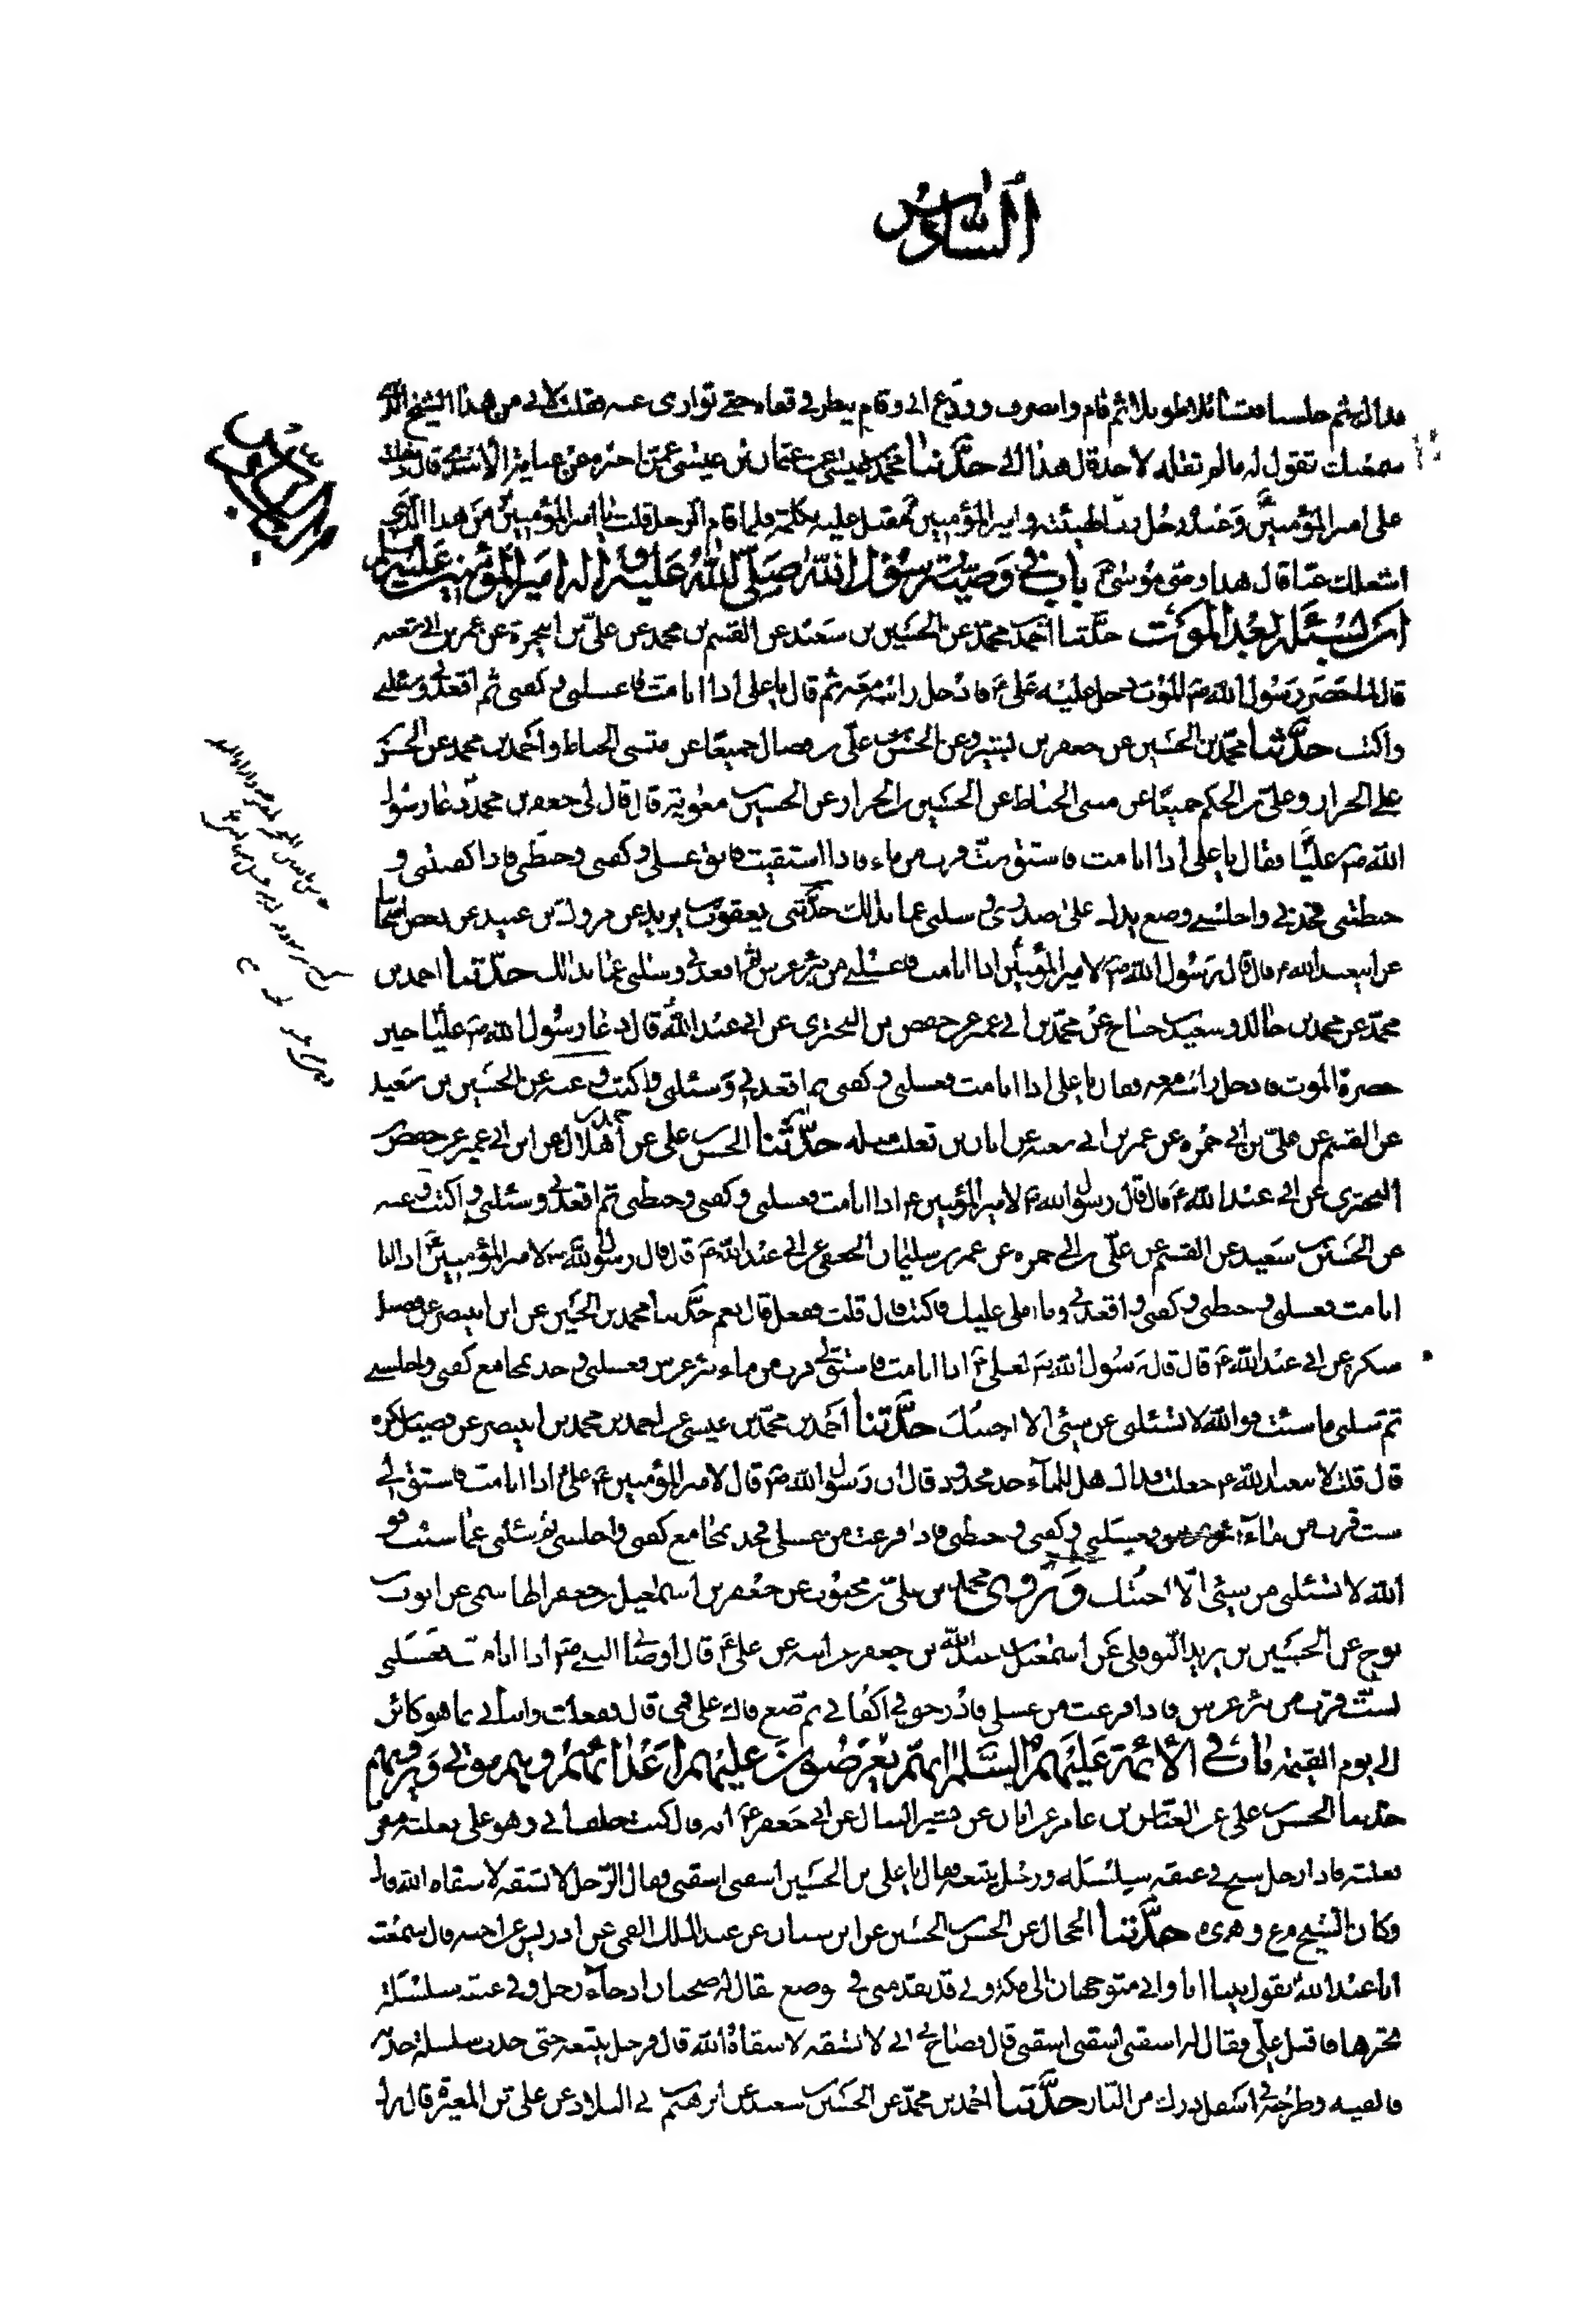 السادس
ثم جلسا فتسائلا طويلا ثم قام وانصرف وودع ابي وقام ينظر في قفاه حتى توارى عنه فقلت لابي من هذا الشيخ الذي
سمعتك تقول له ما لم تقله لاحد قال هذا ابي حدثنا محمد عيسى عن عثمان بن عيسى عمن اخبره عن عباية الاسدي قال دخلت
على امير المؤمنين وعنده رجل وامير المؤمنين مقبل عليه يكلمه فلما قام الرجل قلت يا امير المؤمنين من هذا الذي
اشغلك عنا قال هذا وصي موسى باب في وصية رسول الله صلى الله عليه واله امير المؤمنين عليه
ان يسئله بعد الموت حدثنا احمد محمد عن الحسين بن سعيد عن القسم بن محمد عن علي بن ابي حمزة عن عمر بن ابي شعبه
قال لما حضر رسول الله ص الموت دخل عليه علي ع فادخل راسه معه ثم قال يا علي اذا انا مت فاغسلني وكفني ثم اقعدني وسئلني
واكتب حدثنا محمد بن الحسين عن جعفر بن بشير وعن الحسن علي بن فضال جميعا عن مثنى الحناط واحمد بن محمد عن الحسن
علي الخزاز وعلي بن الحكم جميعا عن مثنى الحناط عن الحسين الخزاز عن الحسين معوية قال قال لي جعفر بن محمد دعا رسول
الله ص عليا فقال يا علي اذا انا مت فاستق ست قرب من ماء فاذا استقيت فانق غسلي وكفني وحنطني فاذا كفنتني و
حنطتني فخذني واجلسني وضع يدك على صدري وسلني عما بدا لك حدثني يعقوب يزيد عن مروك بن عبيد عن بعض اصحابنا
عن ابيعبد الله ع قال قال رسول الله ص لامير المؤمنين اذا انا مت فاغسلني من بئر غرس ثم اقعدني وسلني عما بدا لك حدثنا احمد بن
محمد عن محمد بن خالد وسعيد جناح عن محمد بن ابي عمير عن حفص بن البختري عن ابي عبد الله قال دعا رسول الله ص عليا حين
حضره الموت فادخل راسه معه فقال يا علي اذا انا مت فغسلني وكفني ثم اقعدني وسئلني واكتب وعنه عن الحسين بن سعيد
عن القسم عن علي بن ابي حمزه عن عمر بن ابي شعبه عن ابان بن تغلب مثله حدثنا الحسن علي عن احمد هلال عن ابن ابي عمير عن حفص
البختري عن ابي عبد الله ع قال قال رسول الله ص لامير المؤمنين ع اذا انا مت فغسلني وكفني وحنطني ثم اقعدني وسئلني واكتب وعنه
عن الحسين سعيد عن القسم عن علي بن ابي حمزه عن عمر بن سليمان الجعفي عن ابي عبد الله ع قال قال رسول الله ص لامير المؤمنين ع اذا انا
انا مت فغسلني وحنطني وكفني واقعدني وما املي عليك فاكتب قال قلت ففعل قال نعم حدثنا محمد بن الحسين عن ابن ابينصر عن فضيل
سكره عن ابي عبد الله ع قال قال رسول الله ص لعلي ع اذا انا مت فاستق لي قرب من ماء بئر غرس فغسلني وخذ بمجامع كفني واجلسني
ثم سلني ما شئت فوالله لا تسئلني عن شيئ الا اجبتك حدثنا احمد بن محمد بن عيسى عن احمد بن محمد بن ابينصر عن فضيل سكره
قال قلت لابيعبد الله ع جعلت فداك هل للماء حد محدود قال ان رسول الله ص قال لامير المؤمنين ع علي اذا انا مت فاستق لي
ست قرب من ماء فغسلني وكفني وحنطني فاذا فرغت من غسلي فخذ بمجامع كفني واجلسني ثم سئلني عما شئت فو
الله لا تسئلني من شيئ الا اجبتك وروى محمد بن علي بن محبوب عن جعفر بن اسمعيل جعفر الهاشمي عن ايوب
نوح عن الحسين بن يزيد النوفلي عن اسمعيل عبد الله بن جعفر عن ابيه عن علي ع قال اوصاني النبي ص اذا انا مت فغسلني
بست قرب من بئر غرس فاذا فرغت من غسلي فادرجوني في اكفاني ثم ضع فاك على فمي قال ففعلت وانبأني بما هو كائن
الى يوم القيمة باب في الائمة عليهم السلام انهم يعرضون عليهم اعدائهم وهم موتى ويرونهم
حدثنا الحسن علي عن العباس بن عامر عن ابان عن بشير النبال عن ابي جعفر ع انه قال كنت خلف ابي وهو على بغلته فنفرت
بغلته فاذا رجل شيخ في عنقه سلسله ورجل يتبعه فقال يا علي بن الحسين اسقني اسقني فقال الرجل لا تسقه لا سقاه الله قال
وكان الشيخ معوية حدثنا الحجال عن الحسن الحسين عن ابن سنان عن عبد الملك القمي عن ادريس عن اخيه قال سمعت
ابا عبد الله يقول بينا انا وابي متوجهان الى مكة وابي قد يقدمني في موضع يقال له ضجنان اذ جاء رجل وفي عنقه سلسلة
يجرها فاقبل علي فقال له اسقني اسقني اسقني قال فصاح بي ابي لا تسقه لا سقاه الله قال ورجل يتبعه حتى جذب سلسلة جذبة
فالقيه وطرحته في اسفل درك من النار حدثنا احمد بن محمد عن الحسين سعيد عن ابرهيم ابي البلاد عن علي بن المغيرة قال نزل